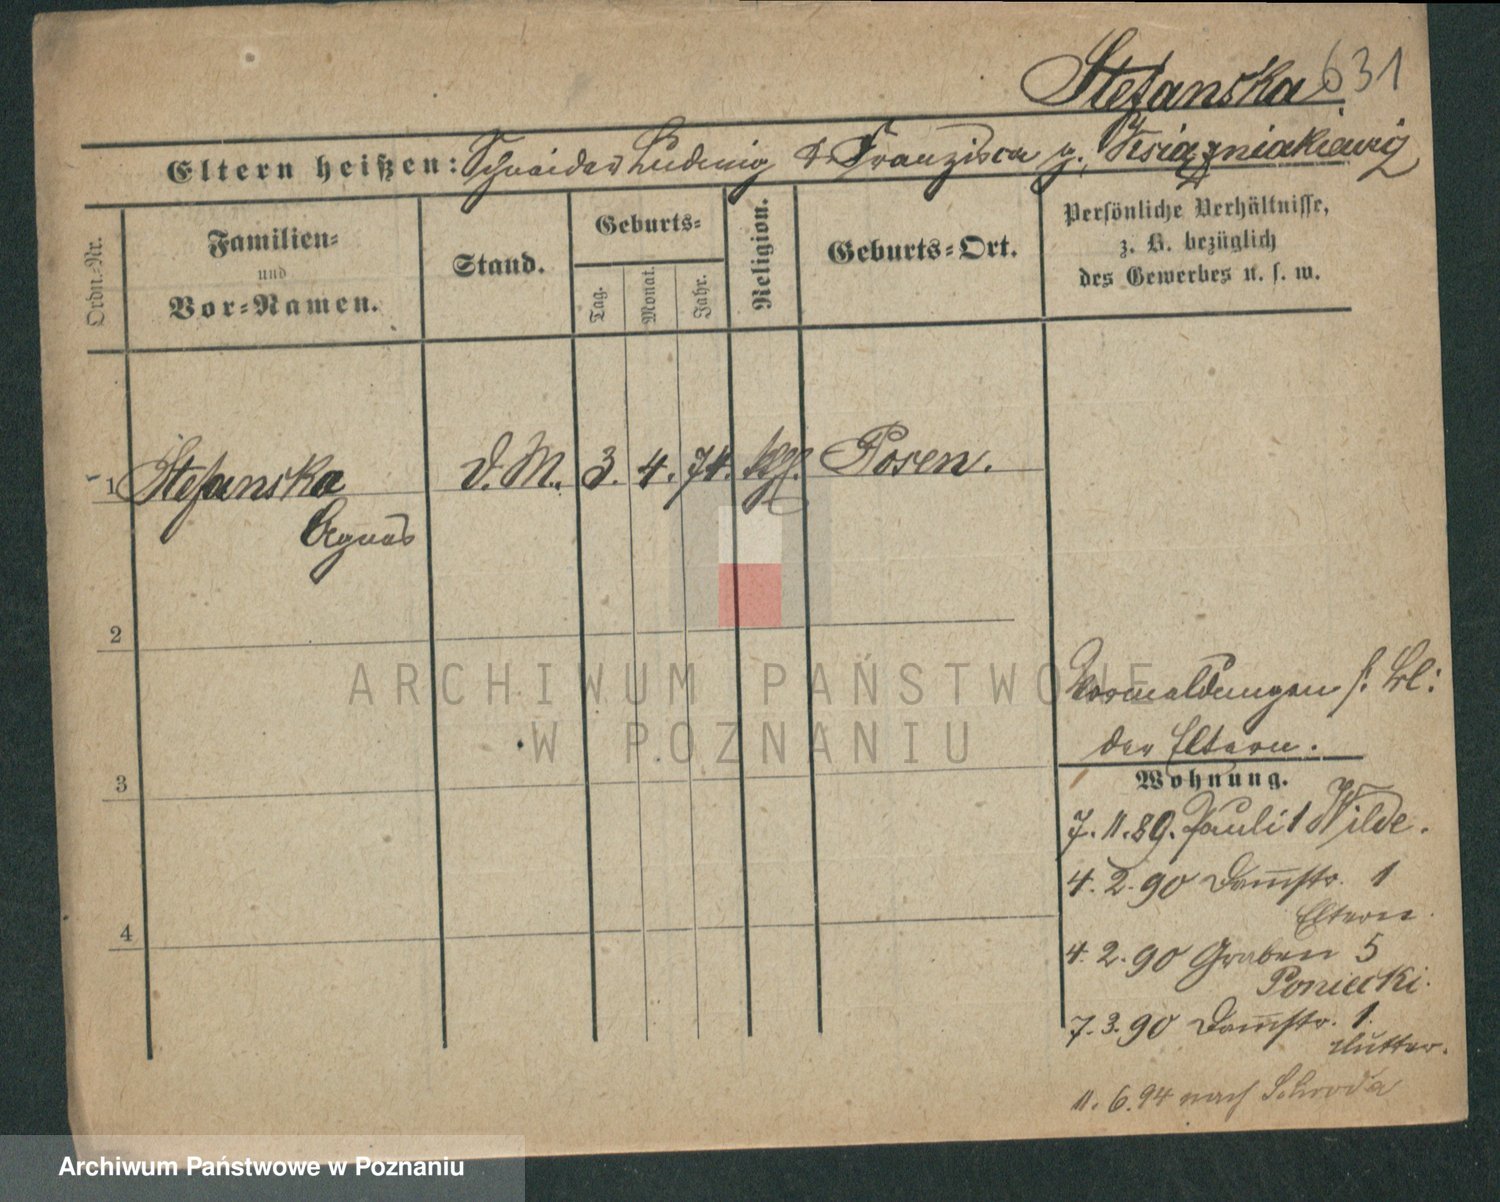 Stefanska 631
Eltern heißen: Schneider Ludwig & Franzisca g. Ksiązniakiewicz
Ordn.-Nr.
Familien-
und
Vor-Namen.
Stand.
Geburts-
Tag.
Monat.
Jahr.
Religion.
Geburts-Ort.
Persönliche Verhältnisse,
z. B. bezüglich
des Gewerbes u. s. w.
1 Stefanska D.M. 3. 4. 74. kgl. Posen.
Agnes
2
3
4
Vormeldungen s. Bl:
der Eltern.
Wohnung.
7. 11. 89. Pauli 1 Wilde.
4. 2. 90 Dam̅str. 1
Eltern.
4. 2. 90 Graben 5
Poniecki.
7. 3. 90 Dam̅str. 1.
Mutter.
11. 6. 94 nach Schroda
ARCHIWUM PAŃSTWOWE
W POZNANIU
Archiwum Państwowe w Poznaniu